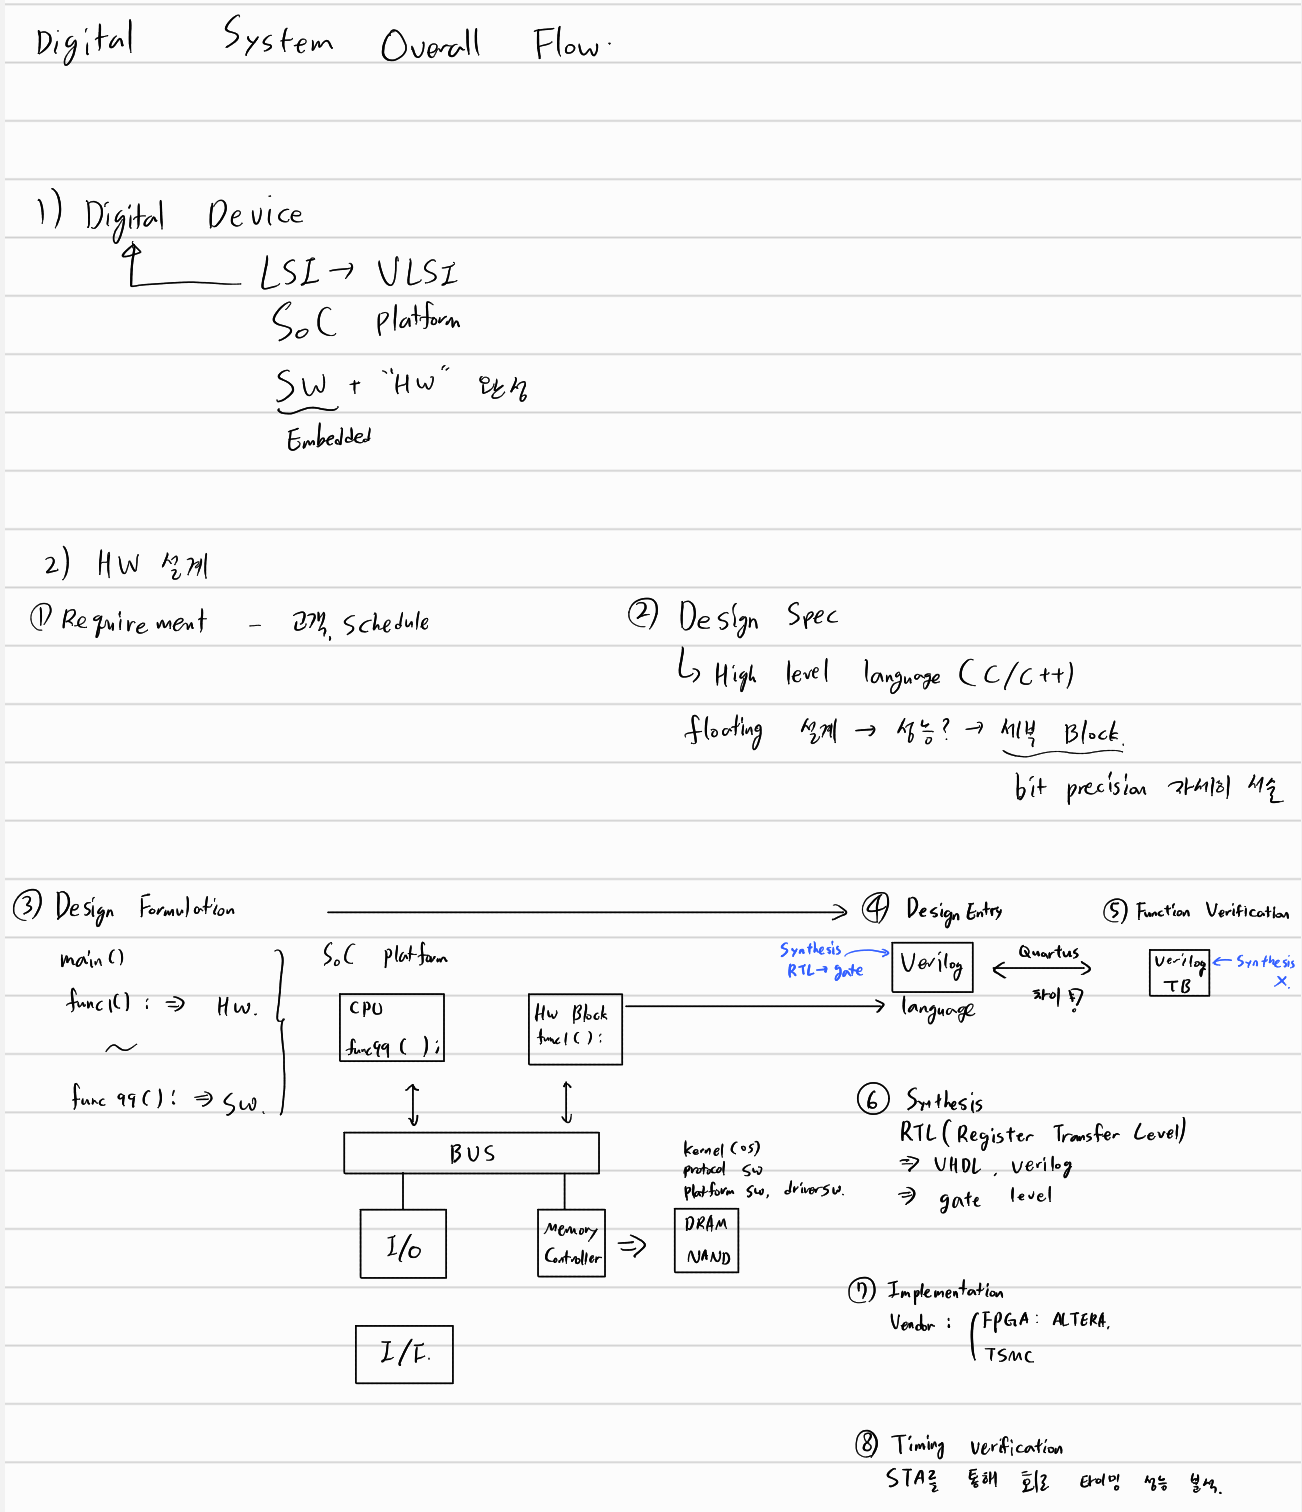 Digital System Overall Flow.
1) Digital Device
LSI → VLSI
SoC platform
SW + "HW" 완성
Embedded
2) HW 설계
① Requirement - 고객, schedule
② Design Spec
↳ High level language (C/C++)
floating 설계 → 성능? → 세부 Block.
bit precision 자세히 서술
③ Design Formulation
main()
func1() : ⇒ HW.
~
func 99() : ⇒ SW.
SoC platform
CPU
func99 ( ) ;
HW Block
func1 ( ) :
BUS
I/O
Memory
Controller
⇒
kernel (OS)
protocol SW
platform SW, driver SW.
DRAM
NAND
I/F.
④ Design Entry
Synthesis
RTL → gate
Verilog
language
Quartus
차이?
⑤ Function Verification
Verilog
TB
← Synthesis
X.
⑥ Synthesis
RTL (Register Transfer Level)
⇒ VHDL, verilog
⇒ gate level
⑦ Implementation
Vendor : FPGA : ALTERA,
TSMC
⑧ Timing verification
STA를 통해 회로 타이밍 성능 분석.